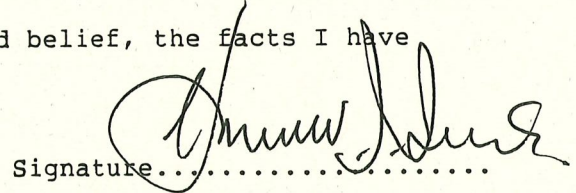 d belief, the facts I have
Signature.......................